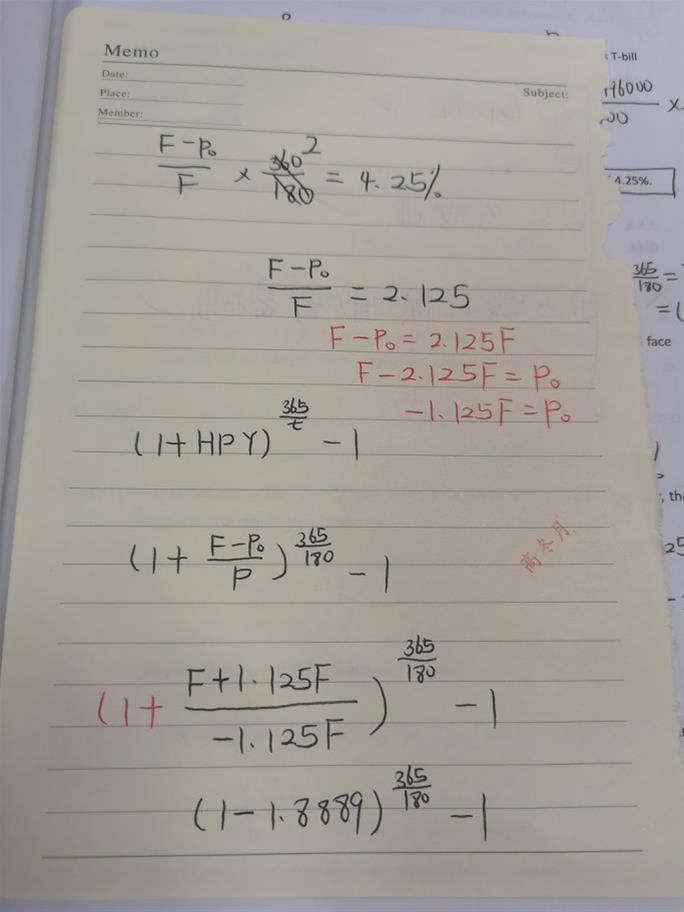 Memo
Date:
Place:
Subject:
Member:
T-bill
96000
4.25%.
365/180 =
= (
face
, the
25
(F-P₀)/F × 360/180 2 = 4.25%
(F-P₀)/F = 2.125
F-P₀ = 2.125F
F-2.125F = P₀
-1.125F = P₀
(1+HPY)^(365/t) - 1
(1+ (F-P₀)/P)^(365/180) - 1
高冬月
(1+ (F+1.125F)/(-1.125F))^(365/180) - 1
(1-1.8889)^(365/180) - 1